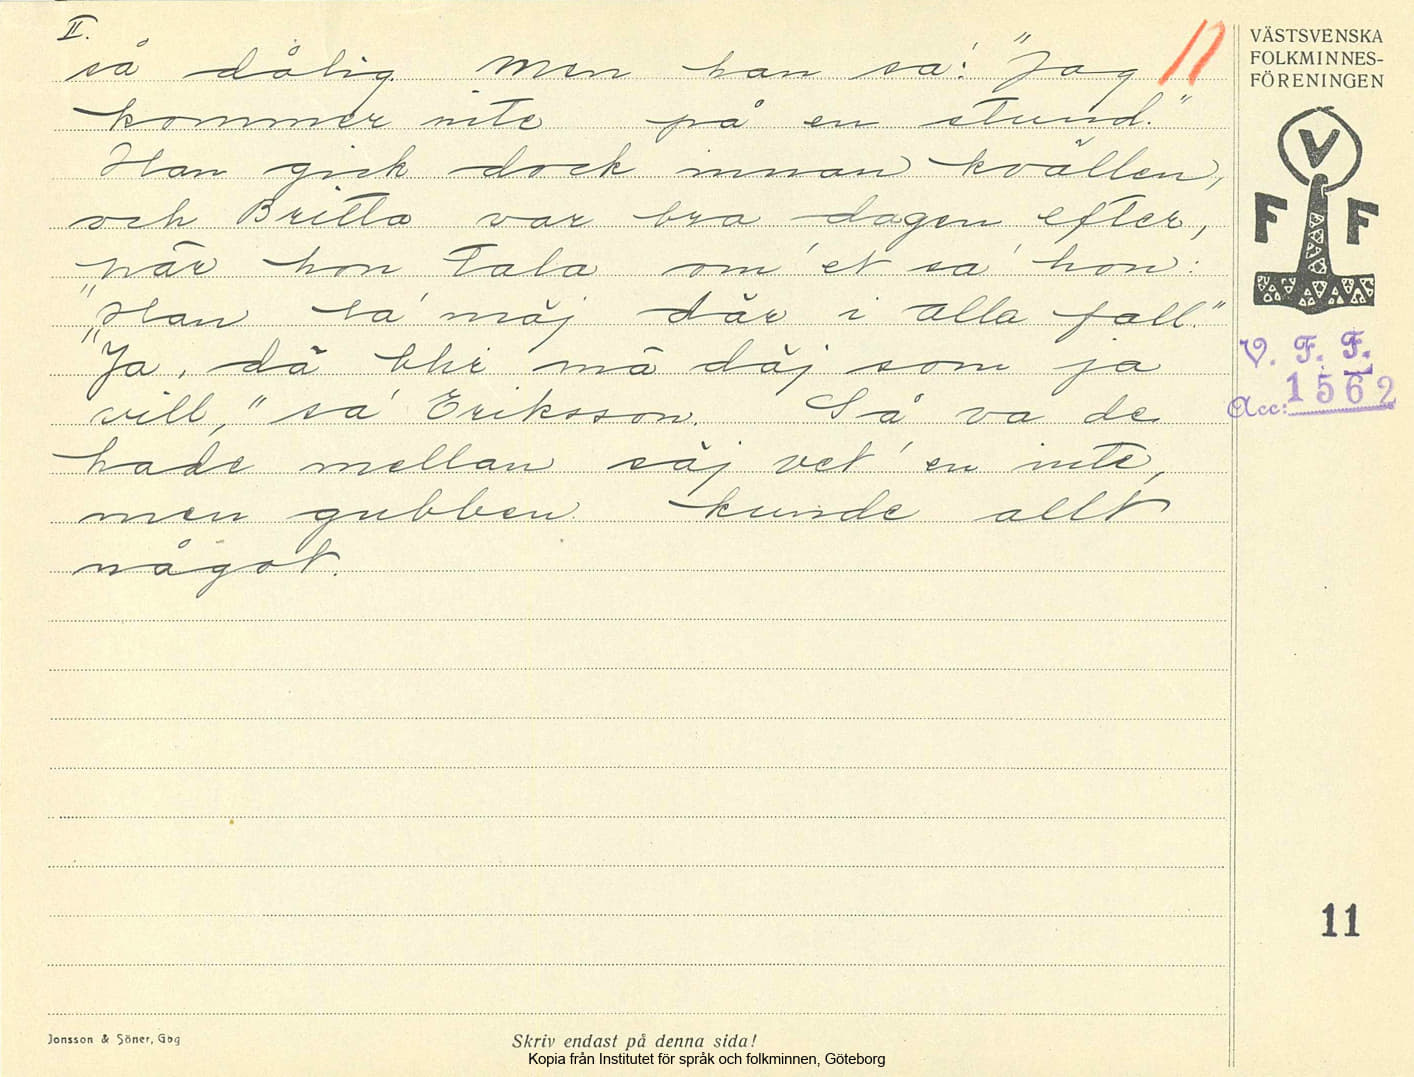 II.
så dålig. Men han sa': "Jag
kommer inte på en stund."
Han gick dock innan kvällen,
och Britta var bra dagen efter,
när hon tala om'et sa' hon:
"Han sa' mäj där i alla fall."
"Ja, då blir mä däj som ja
vill," sa' Eriksson. Så va de
hade mellan säj vet' en inte,
men gubben kunde allt
något.
VÄSTSVENSKA
FOLKMINNES-
FÖRENINGEN
V
F F
V. F. F.
Acc: 1562
11
Jonsson & Söner, Gbg
Skriv endast på denna sida!
Kopia från Institutet för språk och folkminnen, Göteborg